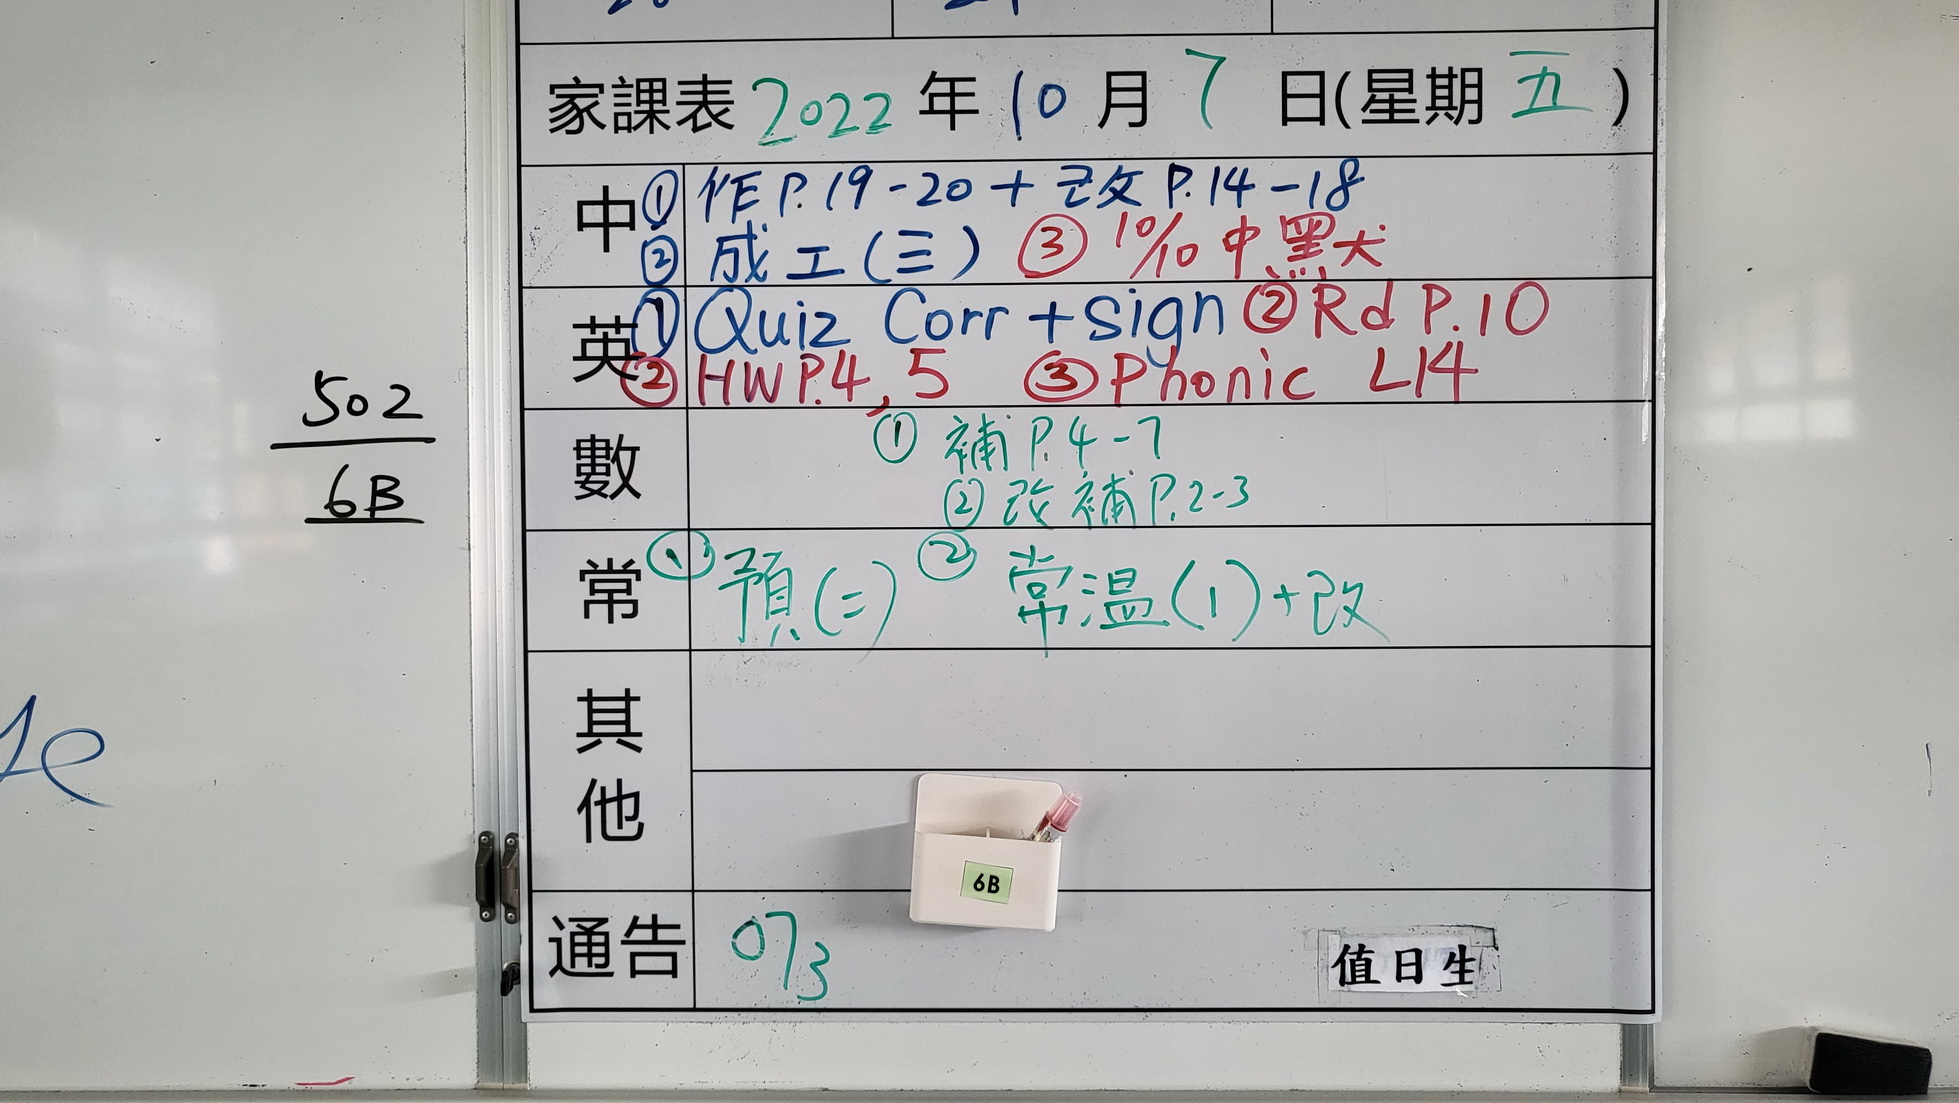 家課表 2022 年 10 月 7 日(星期 五)
中 ① 作 P.19-20 + 改 P.14-18
② 成工(三) ③ 10/10 中黑犬
英 ① Quiz Corr + sign ② Rd P.10
② HW P.4, 5 ③ Phonic L14
數 ① 補 P.4-7
② 改補 P.2-3
常 ① 預(二) ② 常温(1)+改
其他
通告 073
值日生
502
6B
6B